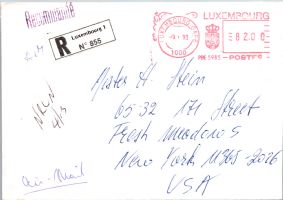 Recommandé
R
Luxembourg 1
N° 855
LUXEMBOURG
1000
8200
PB 5985
POSTES
Mister H. Stein
65-32 171 Street
Fresh Meadows
New York 11365-2026
USA
Air-Mail